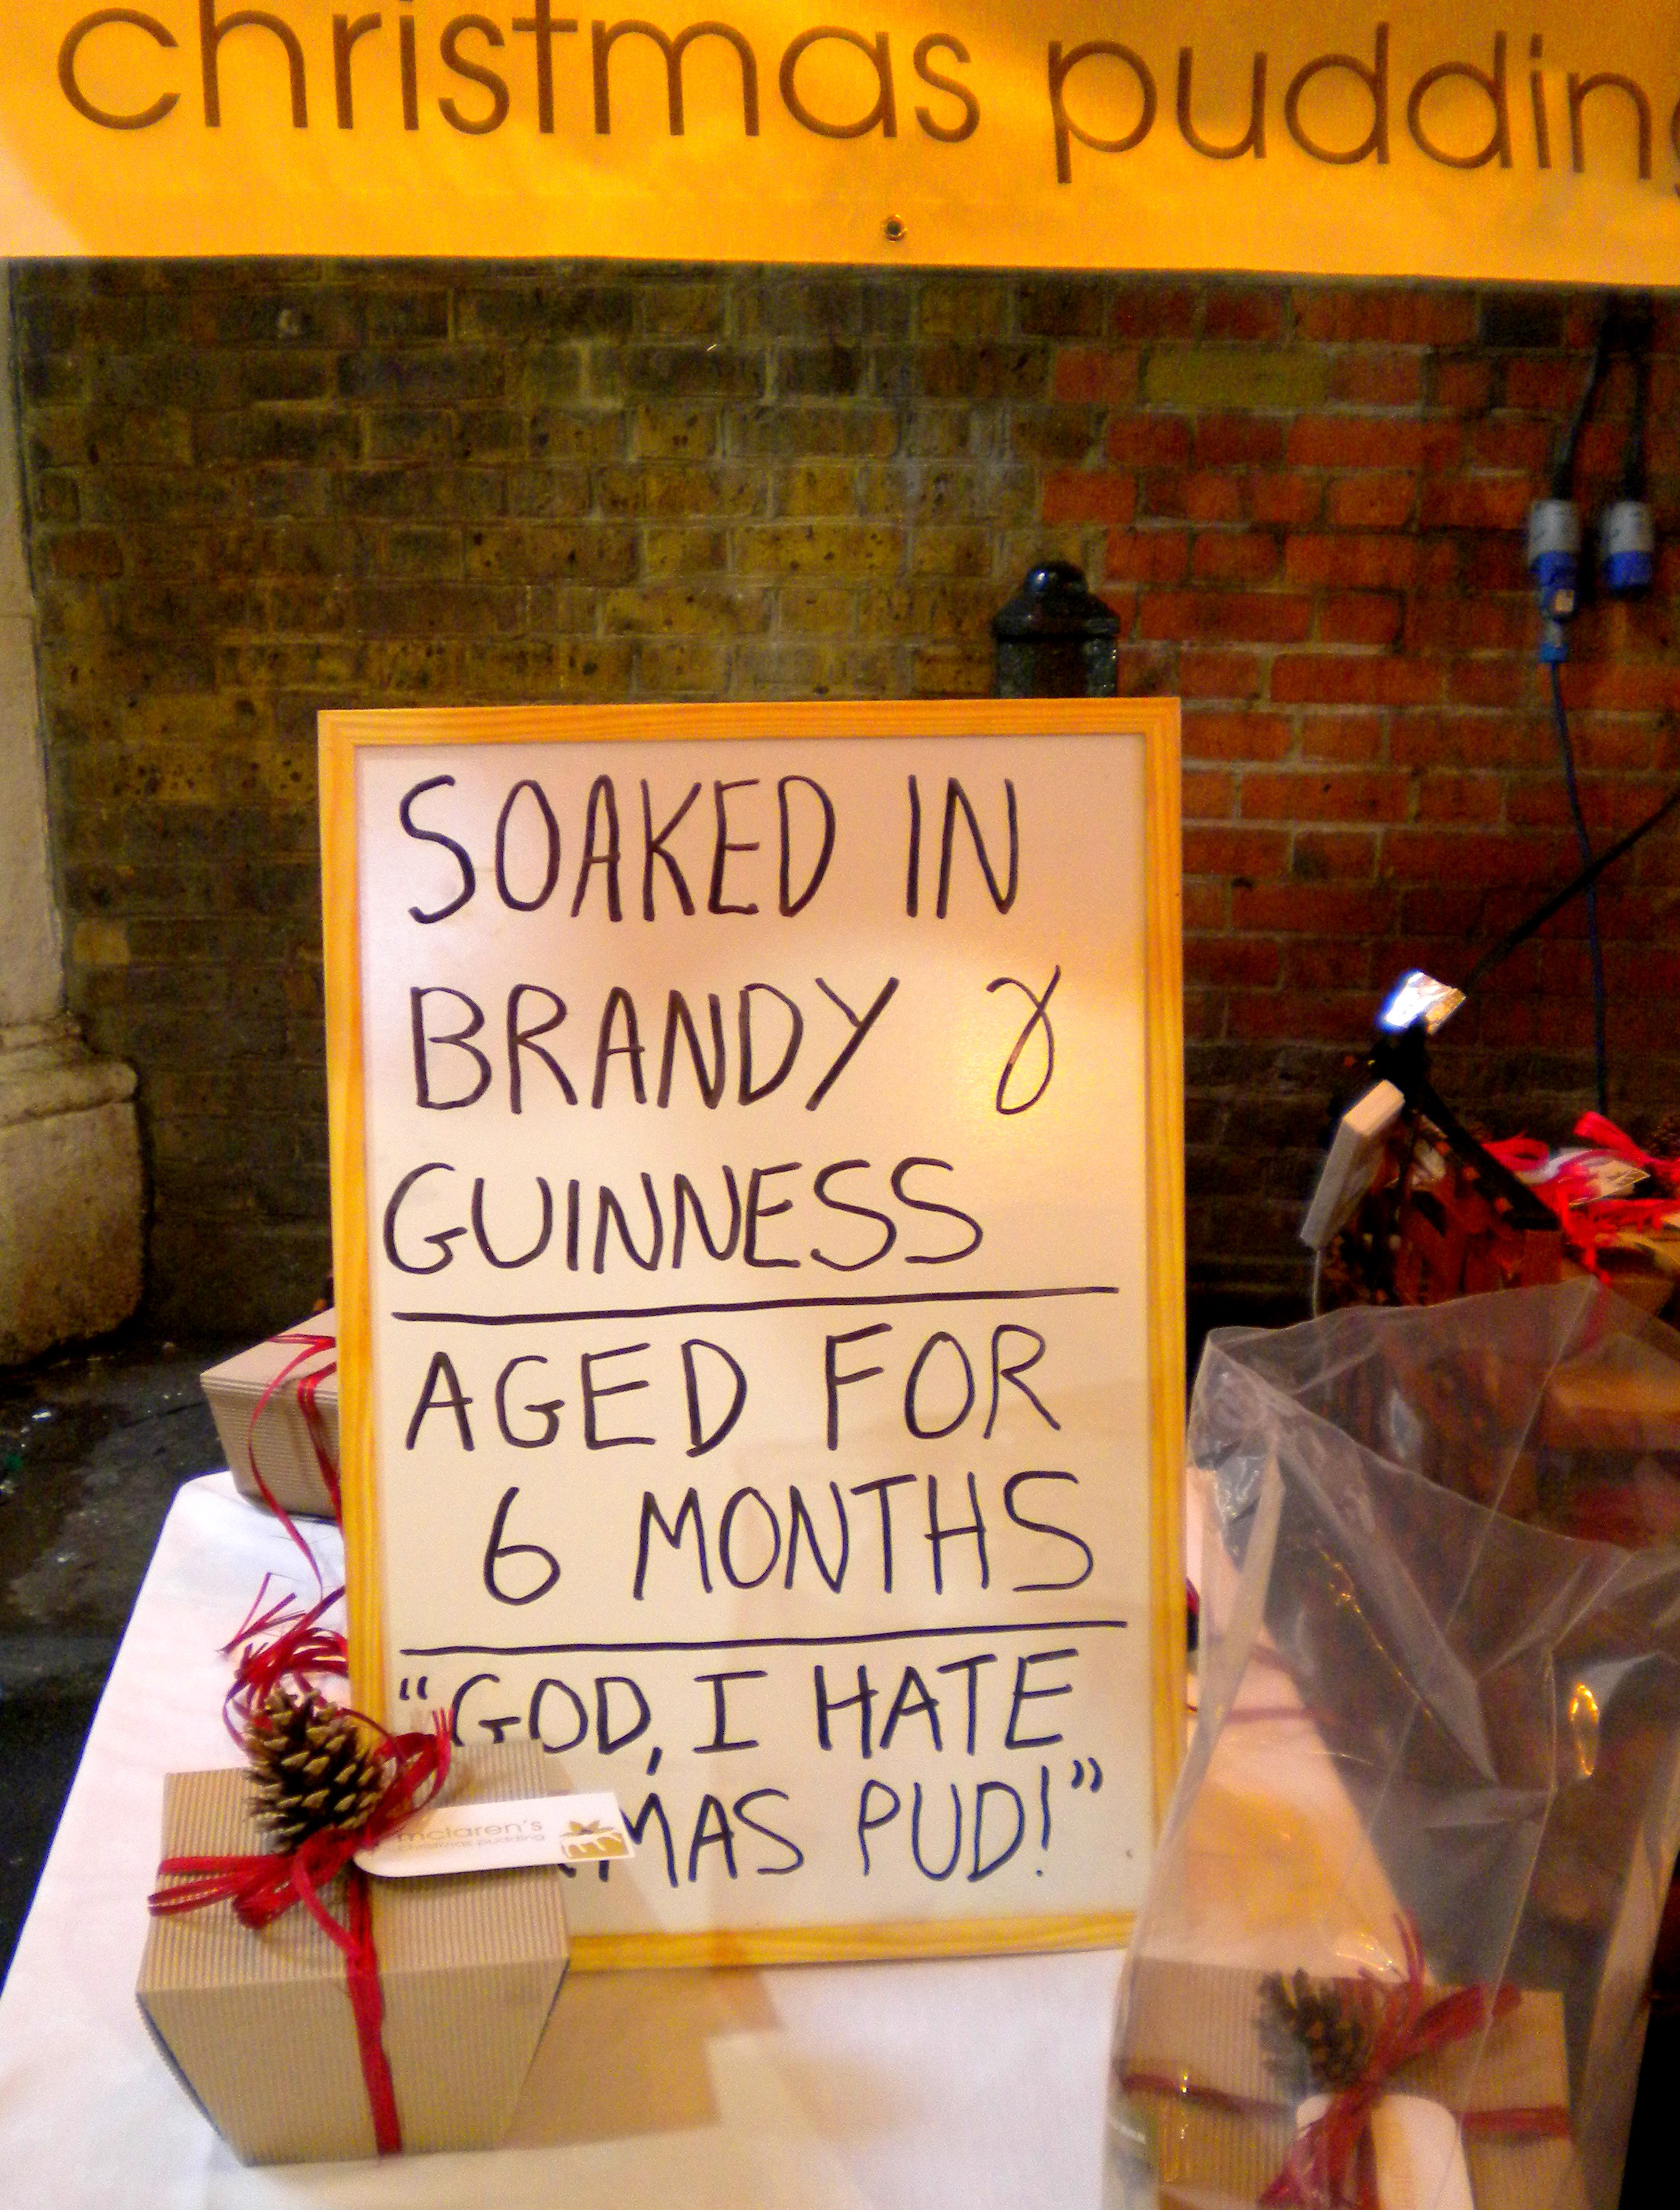 christmas pudding
SOAKED IN
BRANDY &
GUINNESS
AGED FOR
6 MONTHS
"GOD, I HATE
MAS PUD!"
mclaren's
christmas pudding